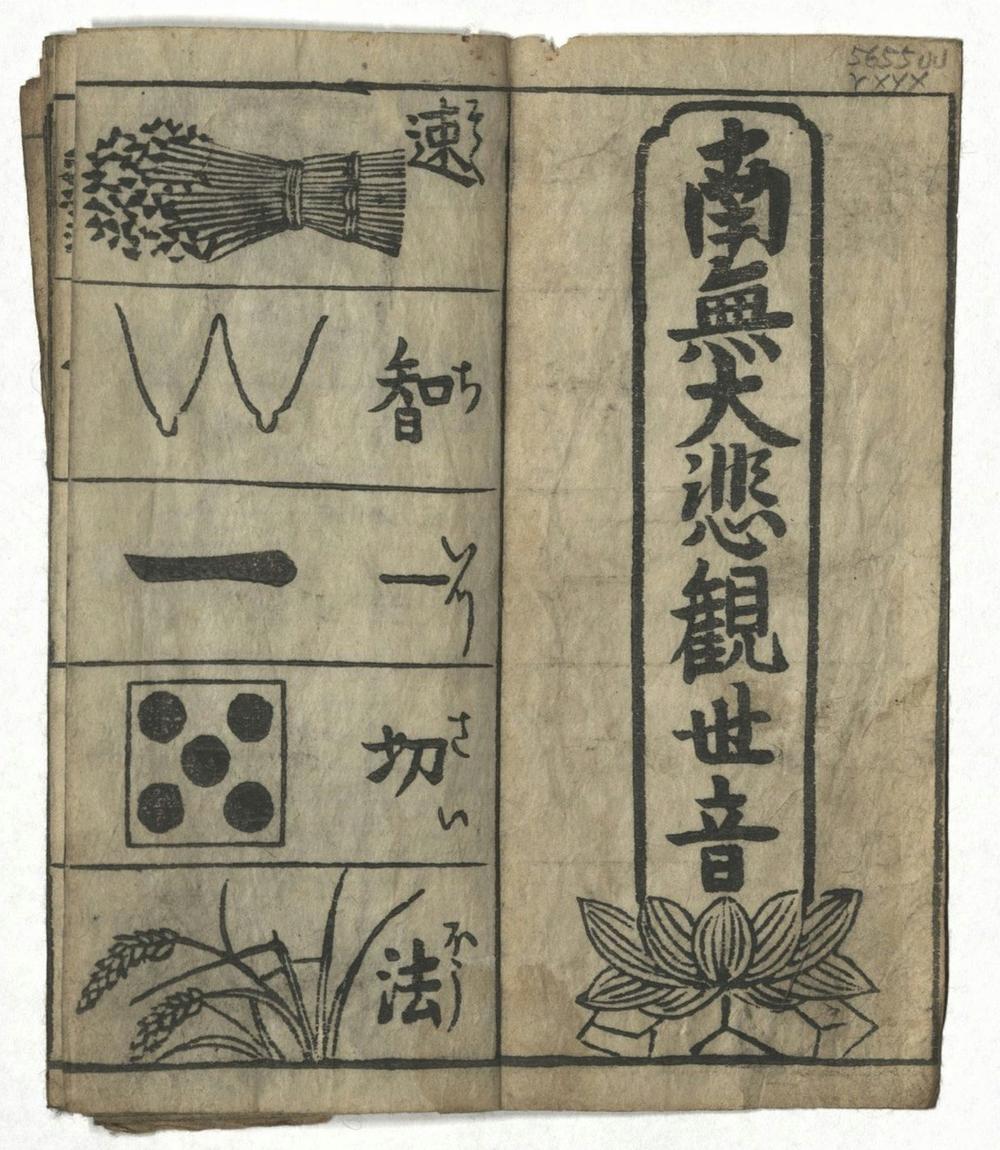 南無大悲観世音
速
そく
智
ち
一
いつ
切
さい
法
ほう